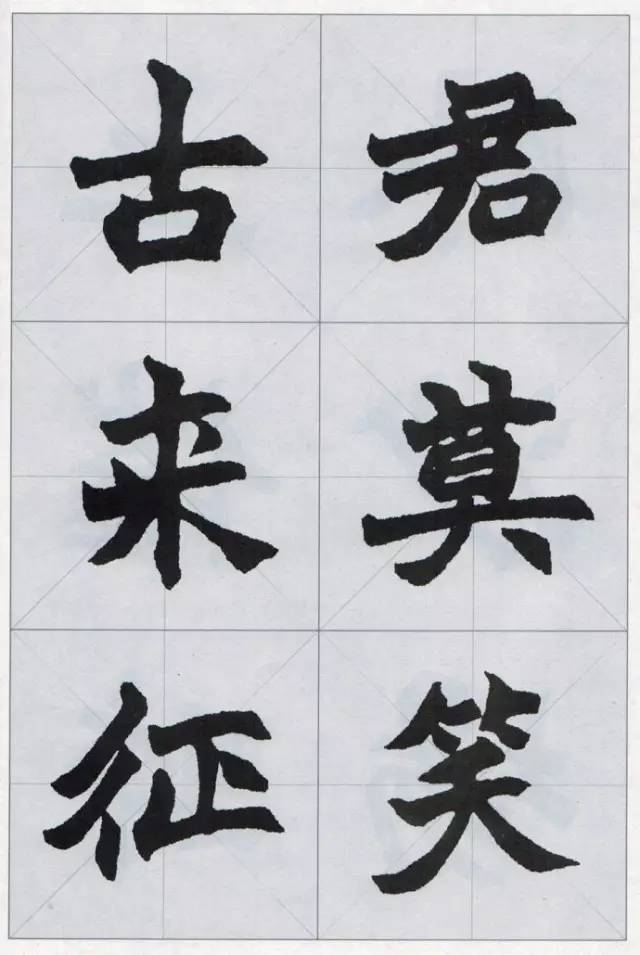 君莫笑
古来征